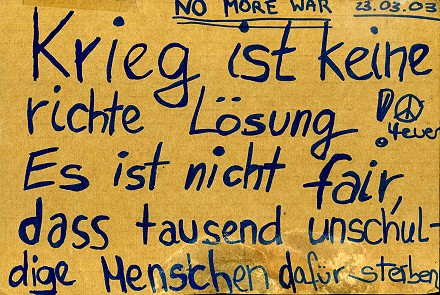 NO MORE WAR 23.03.03
Krieg ist keine
richte Lösung !
4ever
Es ist nicht fair,
dass tausend unschul-
dige Menschen dafür sterben